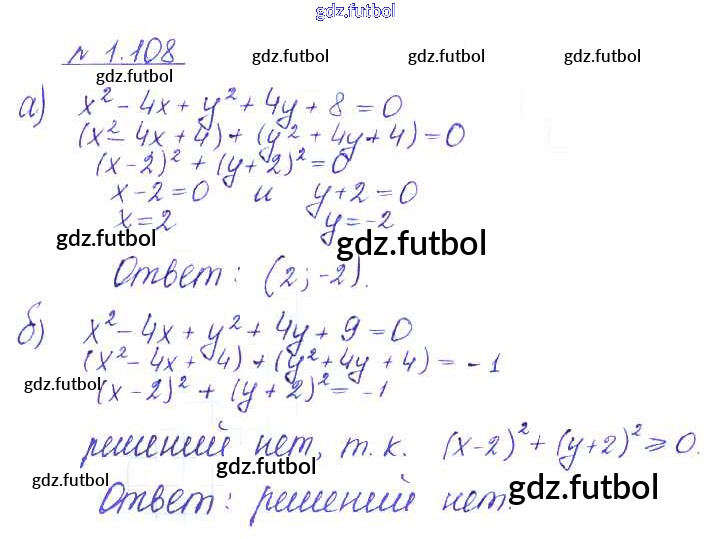 gdz.futbol
№ 1.108 gdz.futbol gdz.futbol gdz.futbol
gdz.futbol
а) x² - 4x + y² + 4y + 8 = 0
(x² - 4x + 4) + (y² + 4y + 4) = 0
(x-2)² + (y+2)² = 0
x - 2 = 0 и y + 2 = 0
x = 2 y = -2
gdz.futbol gdz.futbol
Ответ: (2; -2).
б) x² - 4x + y² + 4y + 9 = 0
(x² - 4x + 4) + (y² + 4y + 4) = -1
gdz.futbol (x-2)² + (y+2)² = -1
решений нет, т.к. (x-2)² + (y+2)² ⩾ 0.
gdz.futbol
gdz.futbol Ответ: решений нет. gdz.futbol